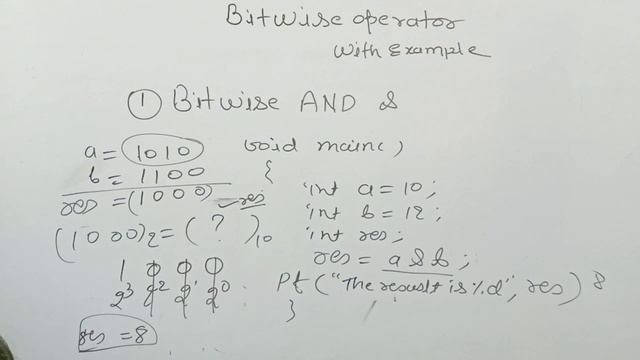 Bitwise operator
with Example
① Bitwise AND &
a = 1010
b = 1100
res = (1000) res
(1000)₂ = (?)₁₀
1 0 0 0
2³ 2² 2¹ 2⁰
res = 8
void main()
{
int a = 10;
int b = 12;
int res;
res = a & b;
Pf("The result is %d", res) 8
}